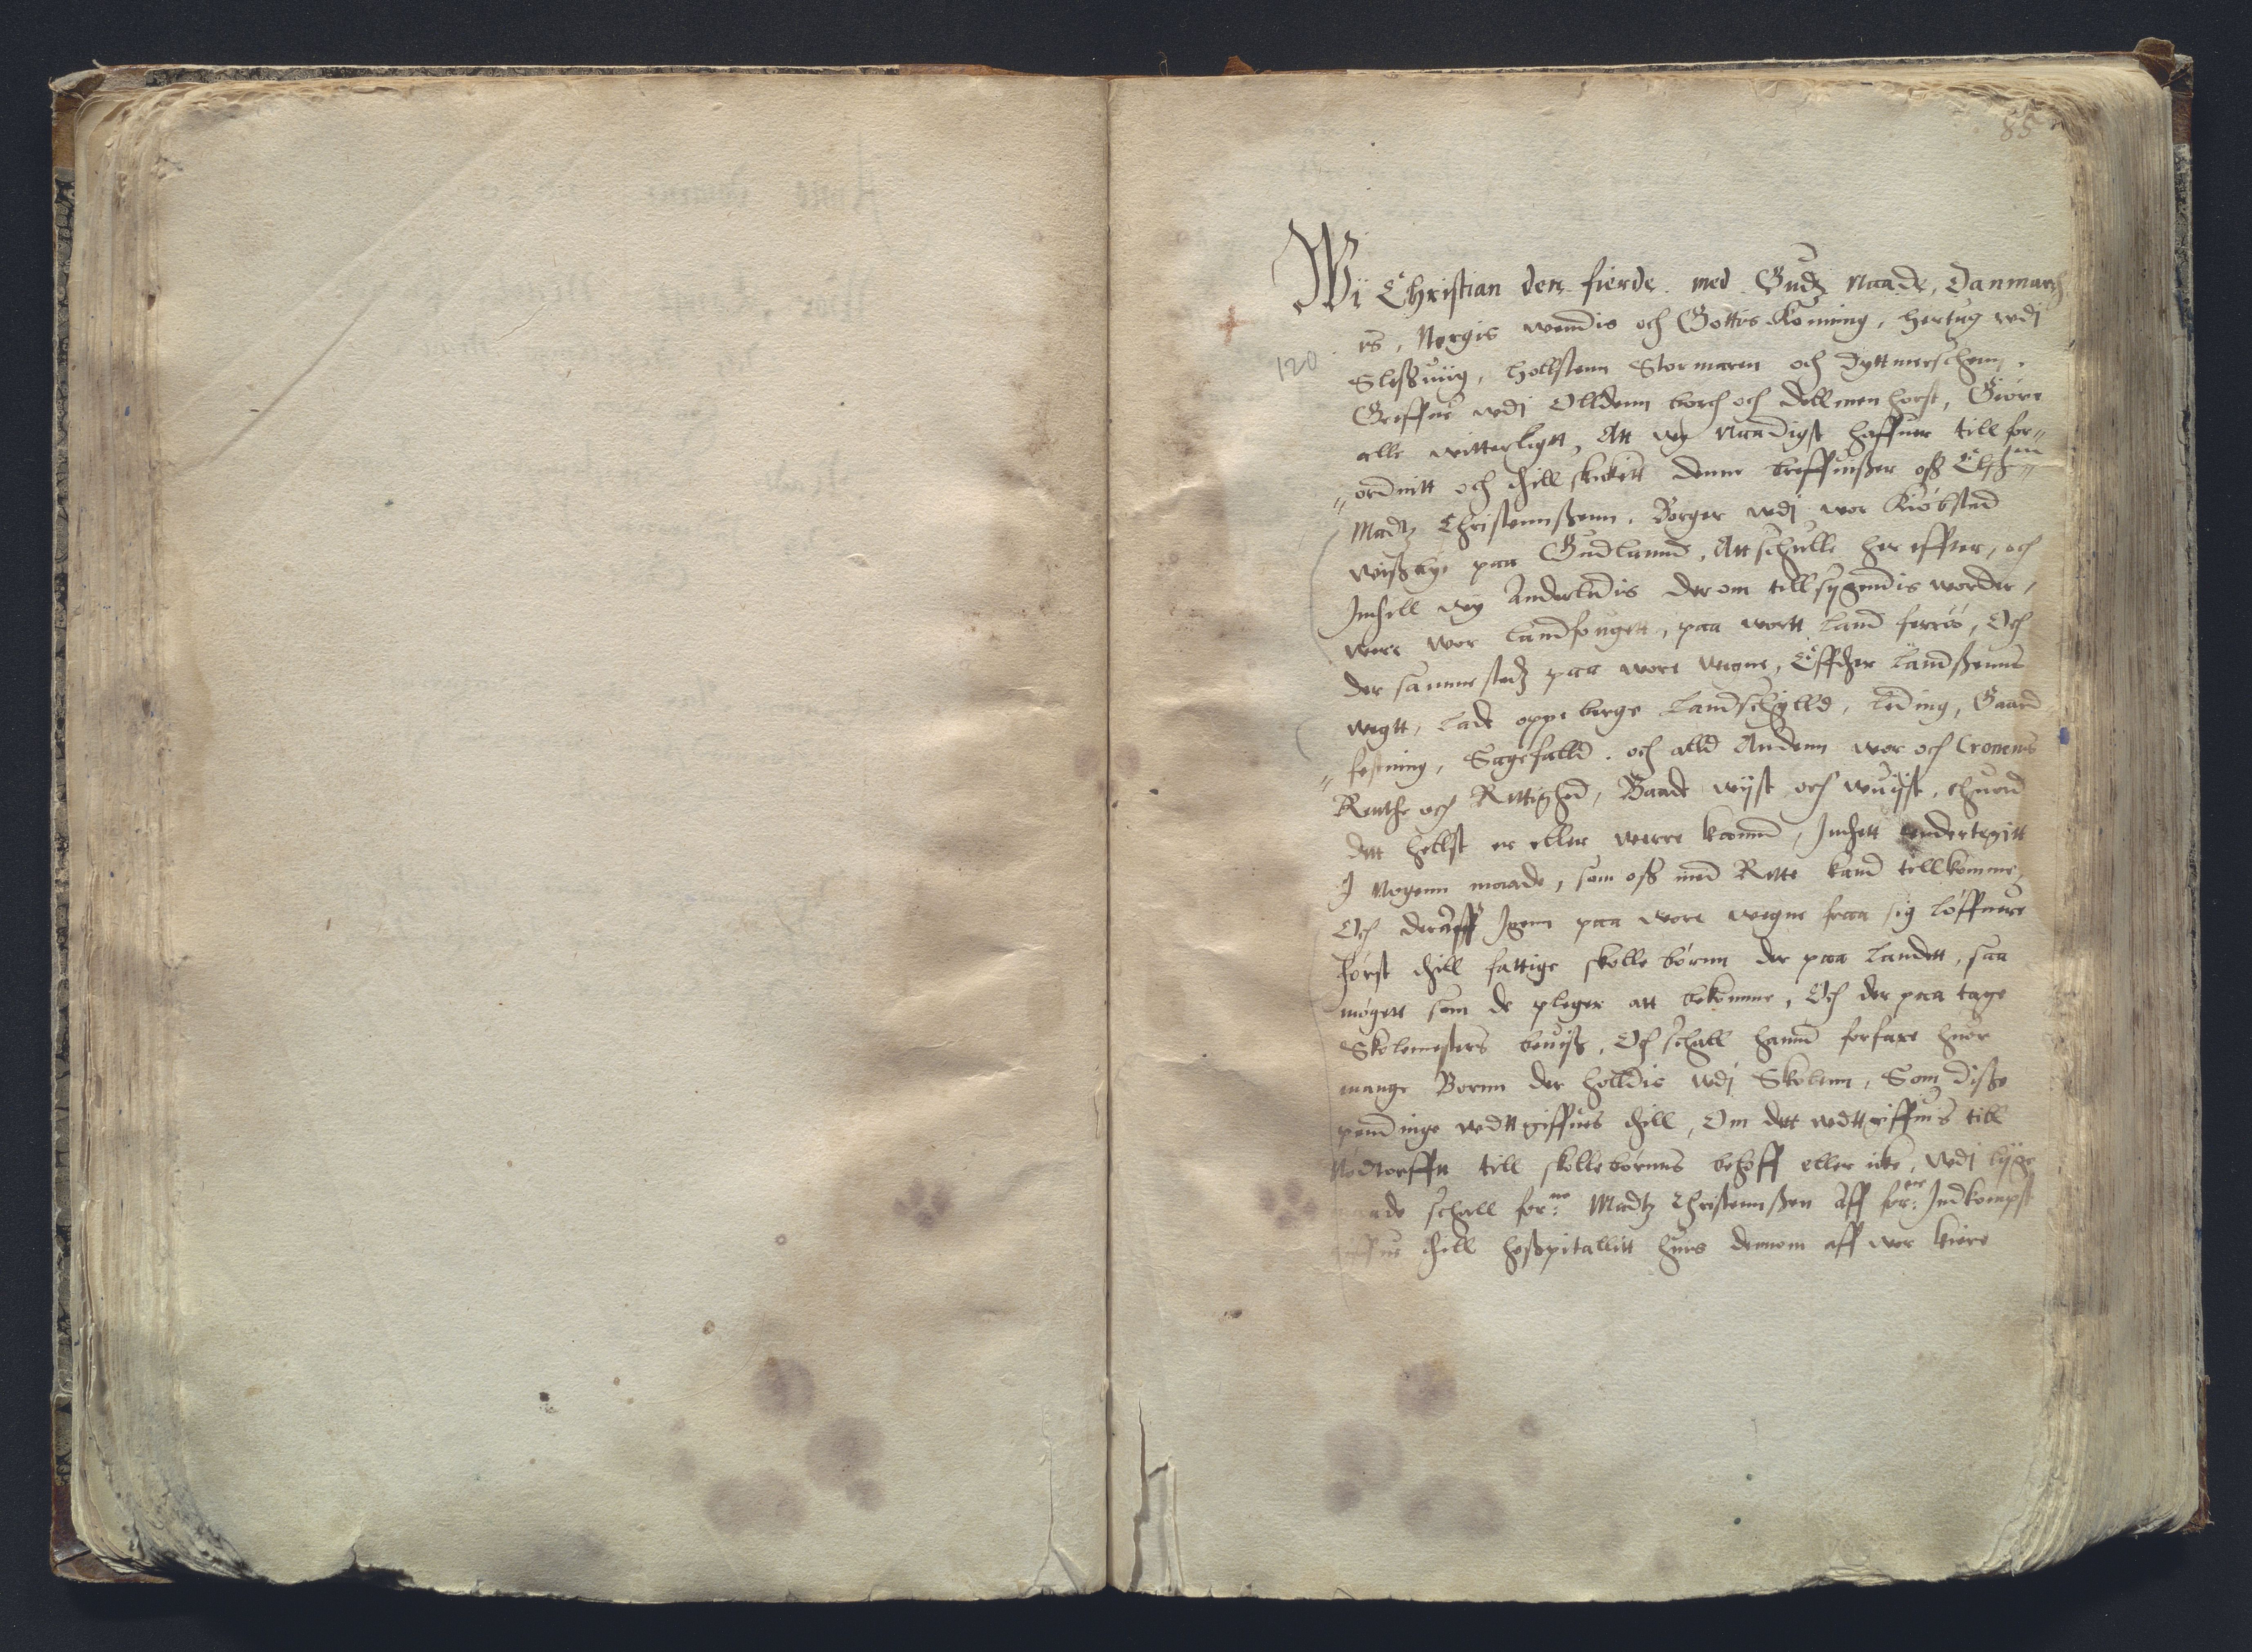 85
Wi Christian den fierde med Gudz Naade, Danmarch
rs, Norgis Wendis och Gottis Konning, hertug wdj
Sleßuiig, Hollstenn Stormaren och Dyttmerschenn,
Greffue wdj Olldenn borch och dellmenhorst, Giøre
alle witterligtt, Att wy Naadigst haffuer till for„
„ordnitt och thill skickitt denne breffuißer oß Elschen„
Madtz Christennßenn, Borger wdj wor Kiøbsted
wißbye paa Gudlannd, Att schulle her effter, och
Inthill wy Anderledis der om tillsygendis worder,
were wor landfougett, paa wortt land ferrø, Och
der samme stedz paa wore wegne, Effther landßenns
wegtt, lade oppe berge landschylld, leding, Gaard
„festning, Sagefalld, och alld Andenn wor och Cronens
Renthe och Rettighed, Baade wyst och wuyst, ehuad
dett hellst er eller werre kannd, Inthett vndertagitt
J nogenn maade, som oß med Rette kand tillkomme,
Och deraff Igenn paa wore wegne fraa sig løffuere
først thill fattige skolle børnn der paa landett, saa
møgett som de pleger att bekomme, Och der paa tage
Skolemesters beuiß, Och schall hannd forfare huor
mange Børnn der holldis wdj Skolenn, Som diße
pendinge wdtt giffues thill, Om dett wdtt giffuis till
Nødtorfftt till skollebørnns behoff eller icke, wdj lyge
schall for:ne Madtz Christennßen aff for:ne Indkompst
thill hoßpitallitt hues dennom aff wor kiere
120